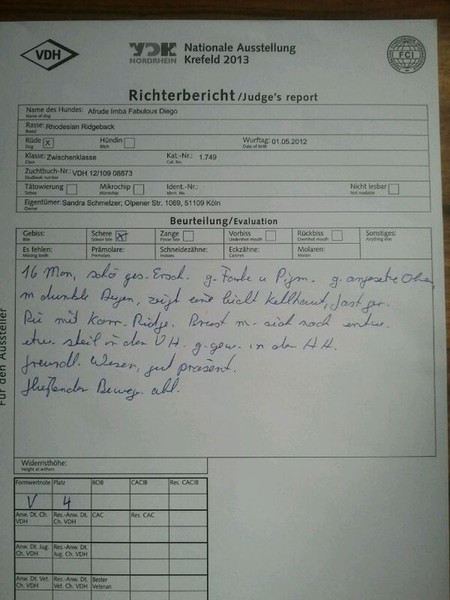 VDH
VDK
NORDRHEIN
Nationale Ausstellung
Krefeld 2013
FCI
Richterbericht/Judge's report
Name des Hundes: Afrude Imba Fabulous Diego
Name of dog
Rasse: Rhodesian Ridgeback
Breed
Rüde x Hündin Wurftag: 01.05.2012
Dog Bitch Date of birth
Klasse: Zwischenklasse Kat.-Nr.: 1.749
Class Cat. No.
Zuchtbuch-Nr.: VDH 12/109 08673
Studbook number
Tätowierung Mikrochip Ident.-Nr.: Nicht lesbar
Tattoo Microchip Ident.-No. Not readable
Eigentümer: Sandra Schmelzer; Olpener Str. 1069, 51109 Köln
Owner
Beurteilung/Evaluation
Gebiss: Schere x Zange Vorbiss Rückbiss Sonstiges:
Bite Scissor bite Pincer bite Undershot mouth Overshot mouth Anything else
Es fehlen: Prämolare: Schneidezähne: Eckzähne: Molaren:
Missing teeth Premolars Incisors Canines Molars
16 Mon, schö ges. Ersch. g. Farbe u Pigm. g. angesetzte Ohren,
m dunkle Augen, zeigt eine leicht Kehlhaut, fast ger.
Rü mit korr. Ridge. Brust m. sich noch entw.
etw. steil in der VH. g. gew. in der HH.
freundl. Wesen, gut präsent.
fließender Beweg. abl.
Für den Aussteller
Widerristhöhe:
Height at withers
Formwertnote Platz BOB CACIB Res. CACIB
V 4
Anw. Dt. Ch. VDH Res.-Anw. Dt. Ch. VDH CAC Res. CAC
Anw. Dt. Jug. Ch. VDH Res.-Anw. Dt. Jug. Ch. VDH
Anw. Dt. Vet. Ch. VDH Res.-Anw. Dt. Vet. Ch. VDH Bester Veteran